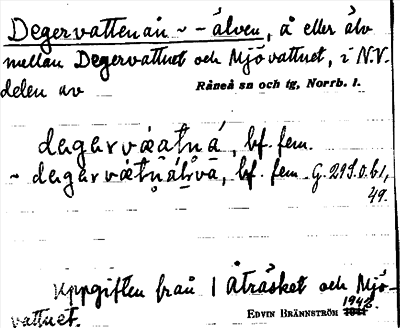 Degervattenån ~ -älven, å eller älv
mellan Degervattnet och Mjövattnet, i N.V.
delen av Råneå sn och tg, Norrb. l.
degərvàatṇå̀, bf. fem.
~ degərvàtṇä́ḷvä, bf. fem. G. 293.0.b1,
49.
Uppgiften från 1 Åträsket och Mjö-
vattnet. EDVIN BRÄNNSTRÖM 1942